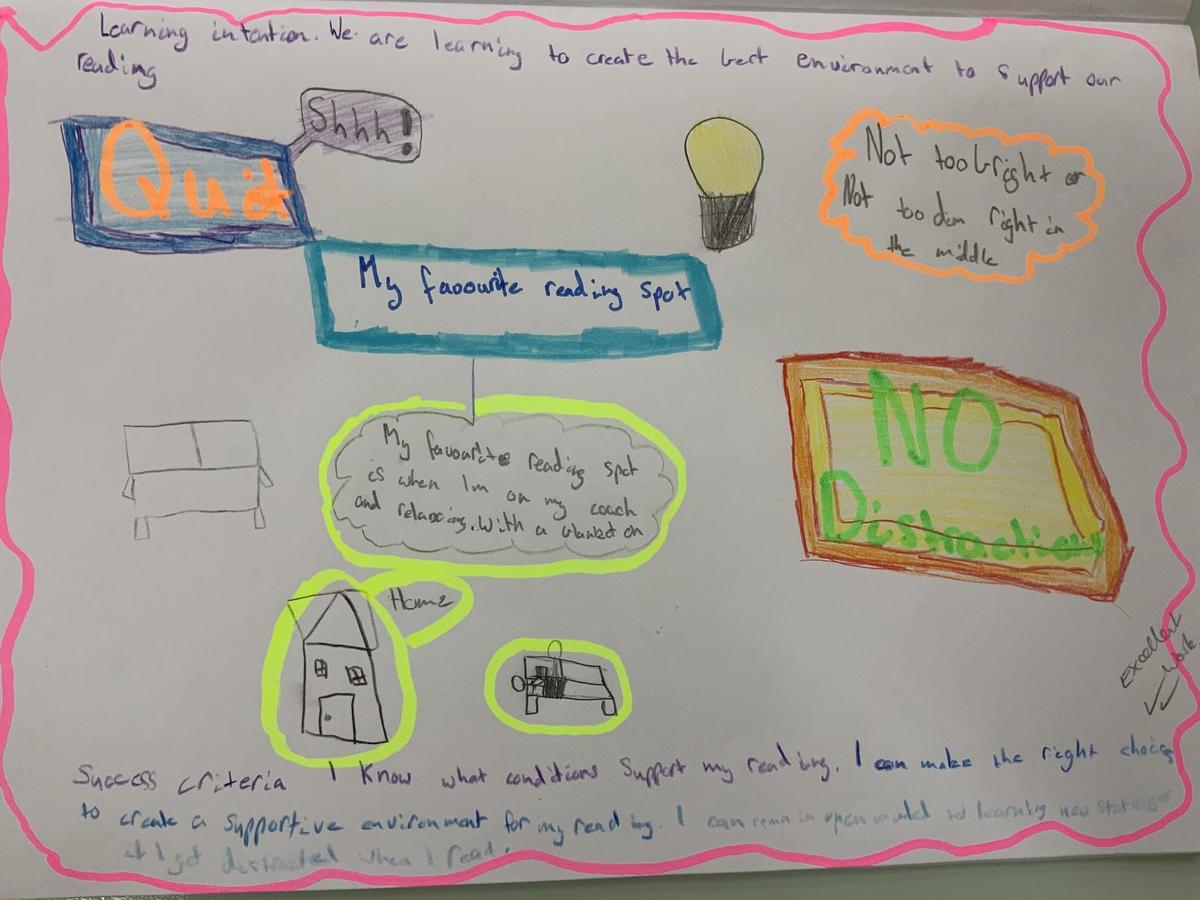 Learning intention. We are learning to create the best environment to support our
reading
Shhh!
Quit
Not too bright or
Not too dim right in
the middle
My favourite reading spot
NO
Distractions
My favourite reading spot
is when Im on my coach
and relaxing. With a blanket on
Home
Excellent
work
Success criteria I know what conditions support my reading. I can make the right choice
to create a supportive environment for my reading. I can remain open minded to learning new
if I get distracted when I read.